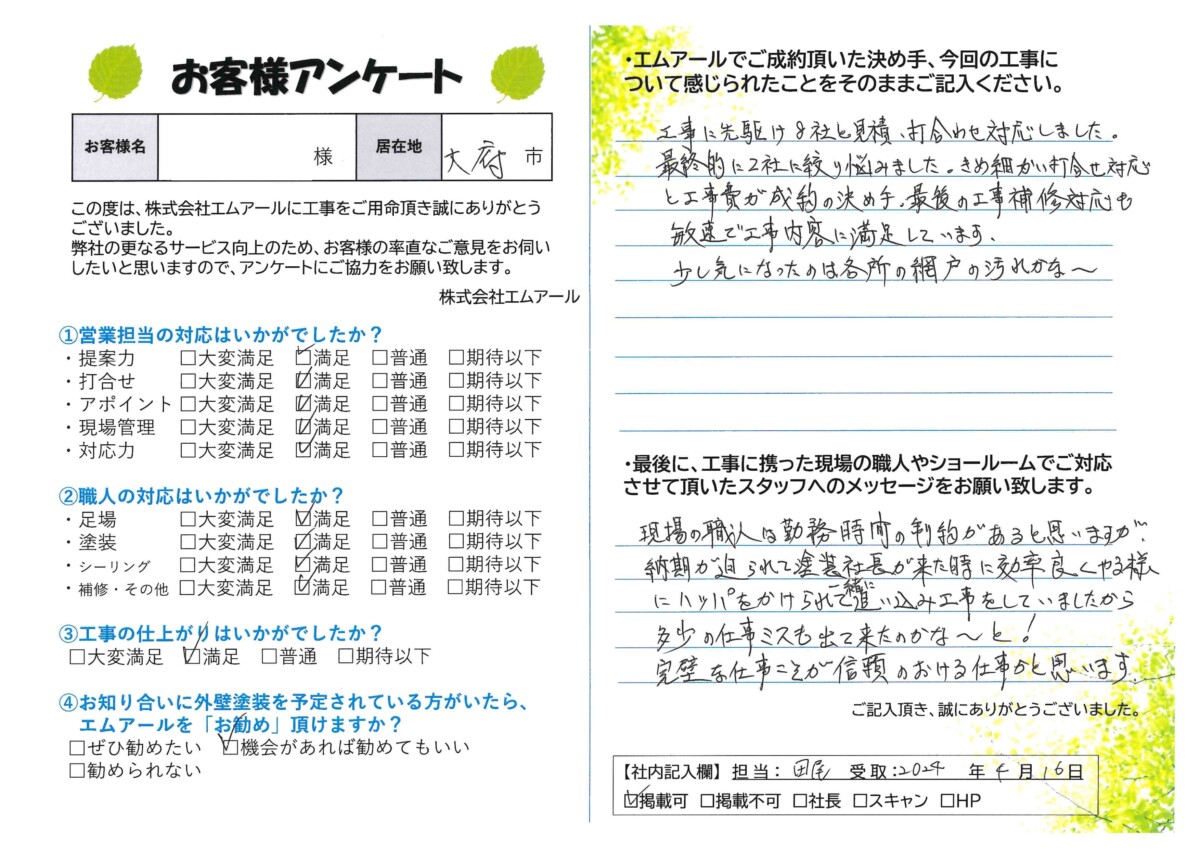 お客様アンケート
お客様名 様 居在地 大府 市
この度は、株式会社エムアールに工事をご用命頂き誠にありがとう
ございました。
弊社の更なるサービス向上のため、お客様の率直なご意見をお伺い
したいと思いますので、アンケートにご協力をお願い致します。
株式会社エムアール
①営業担当の対応はいかがでしたか？
・提案力 □大変満足 ☑満足 □普通 □期待以下
・打合せ □大変満足 ☑満足 □普通 □期待以下
・アポイント □大変満足 ☑満足 □普通 □期待以下
・現場管理 □大変満足 ☑満足 □普通 □期待以下
・対応力 □大変満足 ☑満足 □普通 □期待以下
②職人の対応はいかがでしたか？
・足場 □大変満足 ☑満足 □普通 □期待以下
・塗装 □大変満足 ☑満足 □普通 □期待以下
・シーリング □大変満足 ☑満足 □普通 □期待以下
・補修・その他 □大変満足 ☑満足 □普通 □期待以下
③工事の仕上がりはいかがでしたか？
□大変満足 ☑満足 □普通 □期待以下
④お知り合いに外壁塗装を予定されている方がいたら、
エムアールを「お勧め」頂けますか？
□ぜひ勧めたい ☑機会があれば勧めてもいい
□勧められない
・エムアールでご成約頂いた決め手、今回の工事に
ついて感じられたことをそのままご記入ください。
工事に先駆け8社と見積、打合わせ対応しました。
最終的に2社に絞り悩みました。きめ細かい打合せ対応
と工事費が成約の決め手。最後の工事補修対応も
敏速で工事内容に満足しています。
少し気になったのは各所の網戸の汚れかな〜
・最後に、工事に携った現場の職人やショールームでご対応
させて頂いたスタッフへのメッセージをお願い致します。
現場の職人は勤務時間の制約があると思いますが、
納期が迫られて塗装社長が来た時に効率良くやる様
にハッパをかけられて一緒に追い込み工事をしていましたから
多少の仕事ミスも出て来たのかな〜と！
完璧な仕事こそが信頼のおける仕事かと思います。
ご記入頂き、誠にありがとうございました。
【社内記入欄】 担当： 田尾 受取：2024 年 4 月 16 日
☑掲載可 □掲載不可 □社長 □スキャン □HP